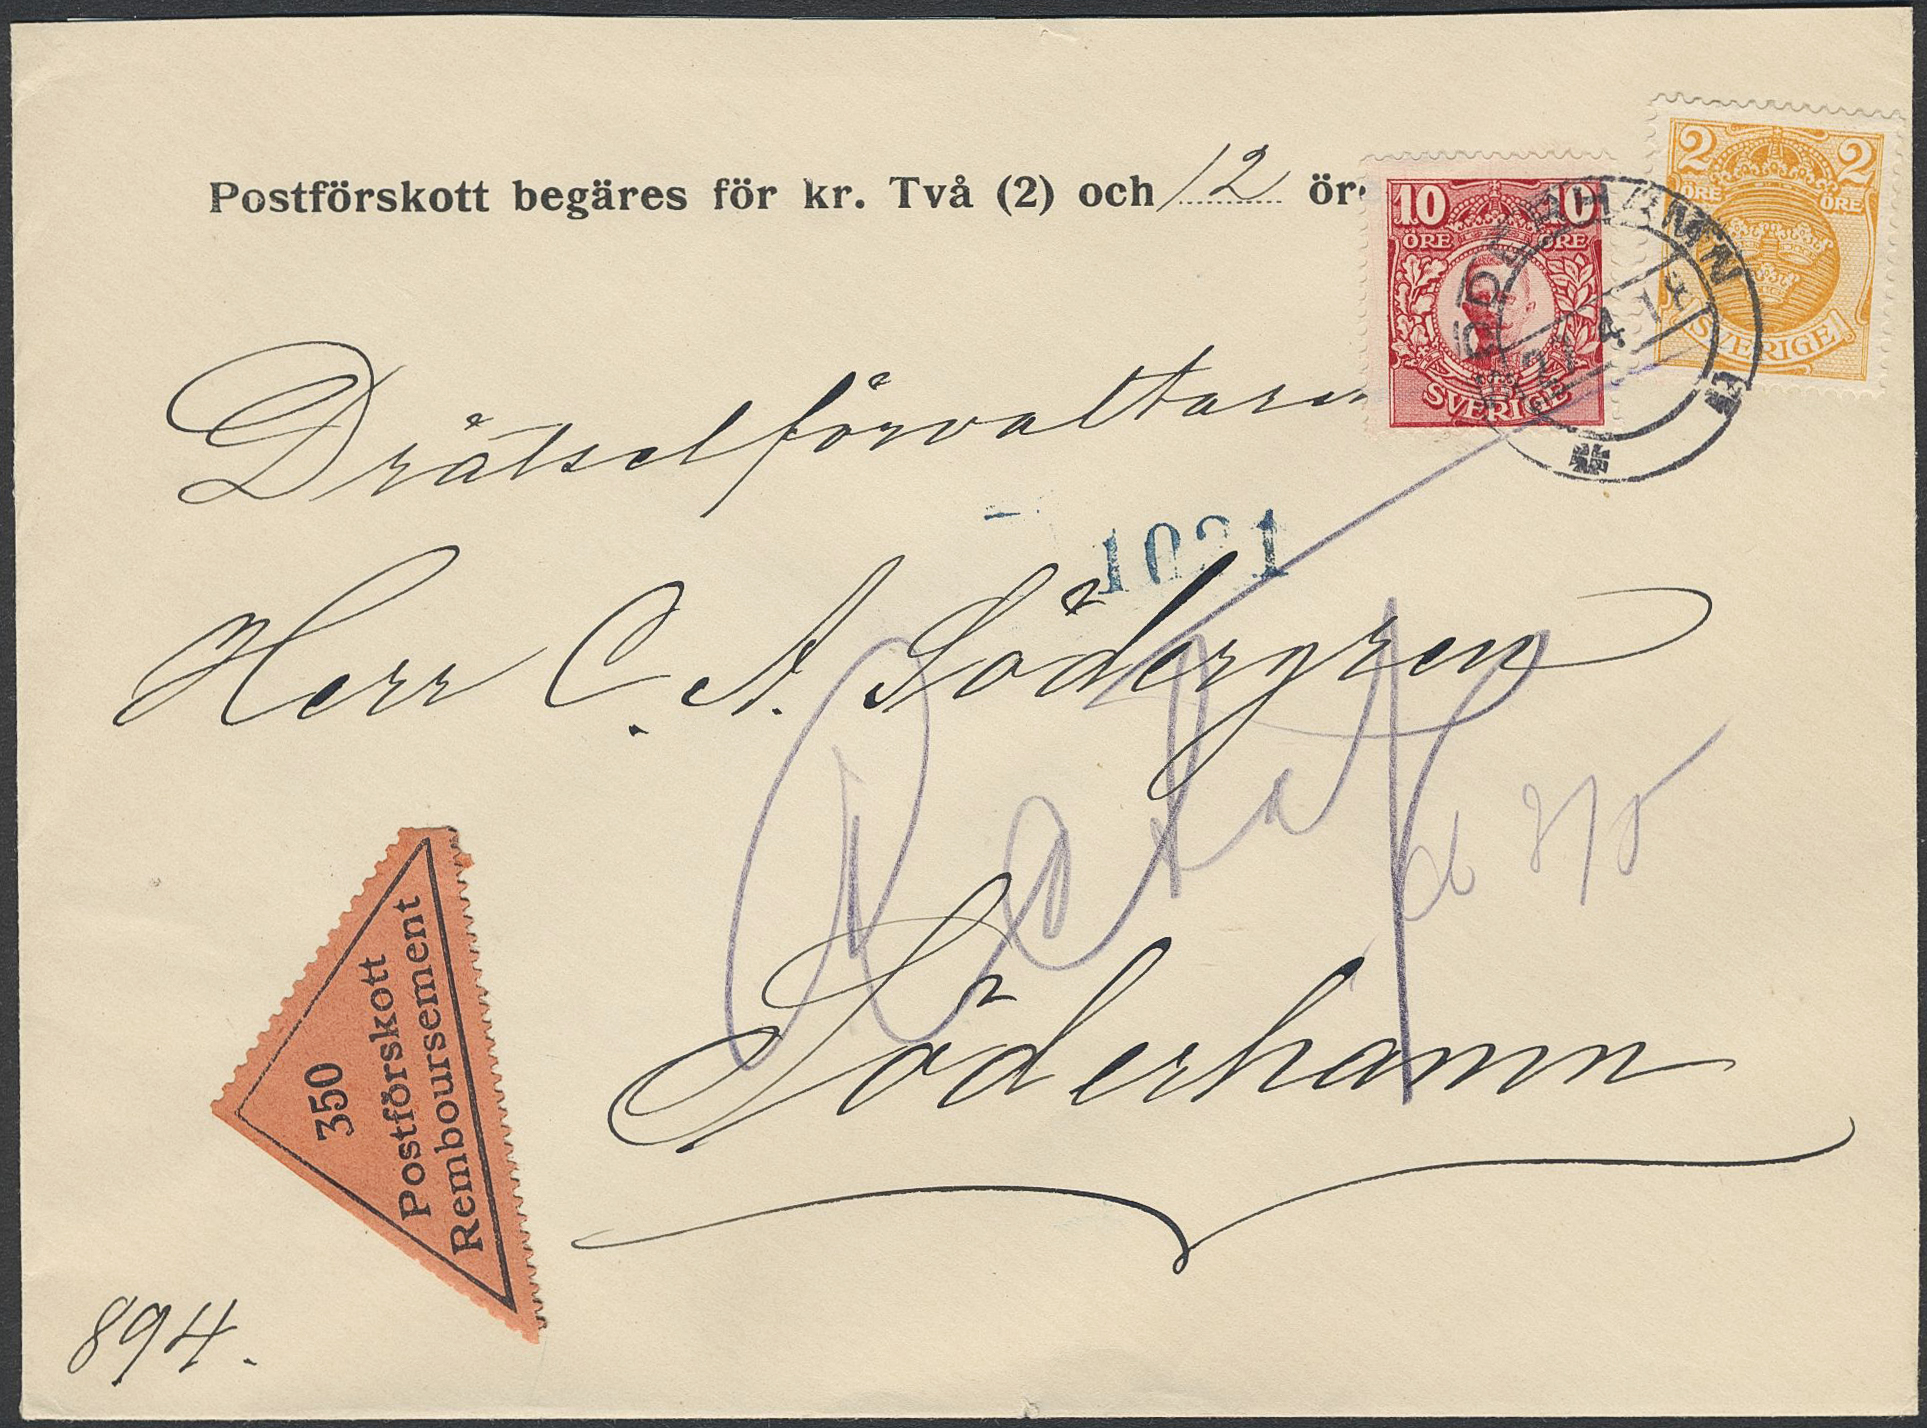 Postförskott begäres för kr. Två (2) och 12 öre
10 10
ÖRE ÖRE
SVERIGE
2 2
ÖRE ÖRE
SVERIGE
SÖDERHAMN
Drätselförvaltaren
1021
Herr C. A. Södergren
Retur
Söderhamn
350
Postförskott
Remboursement
894.